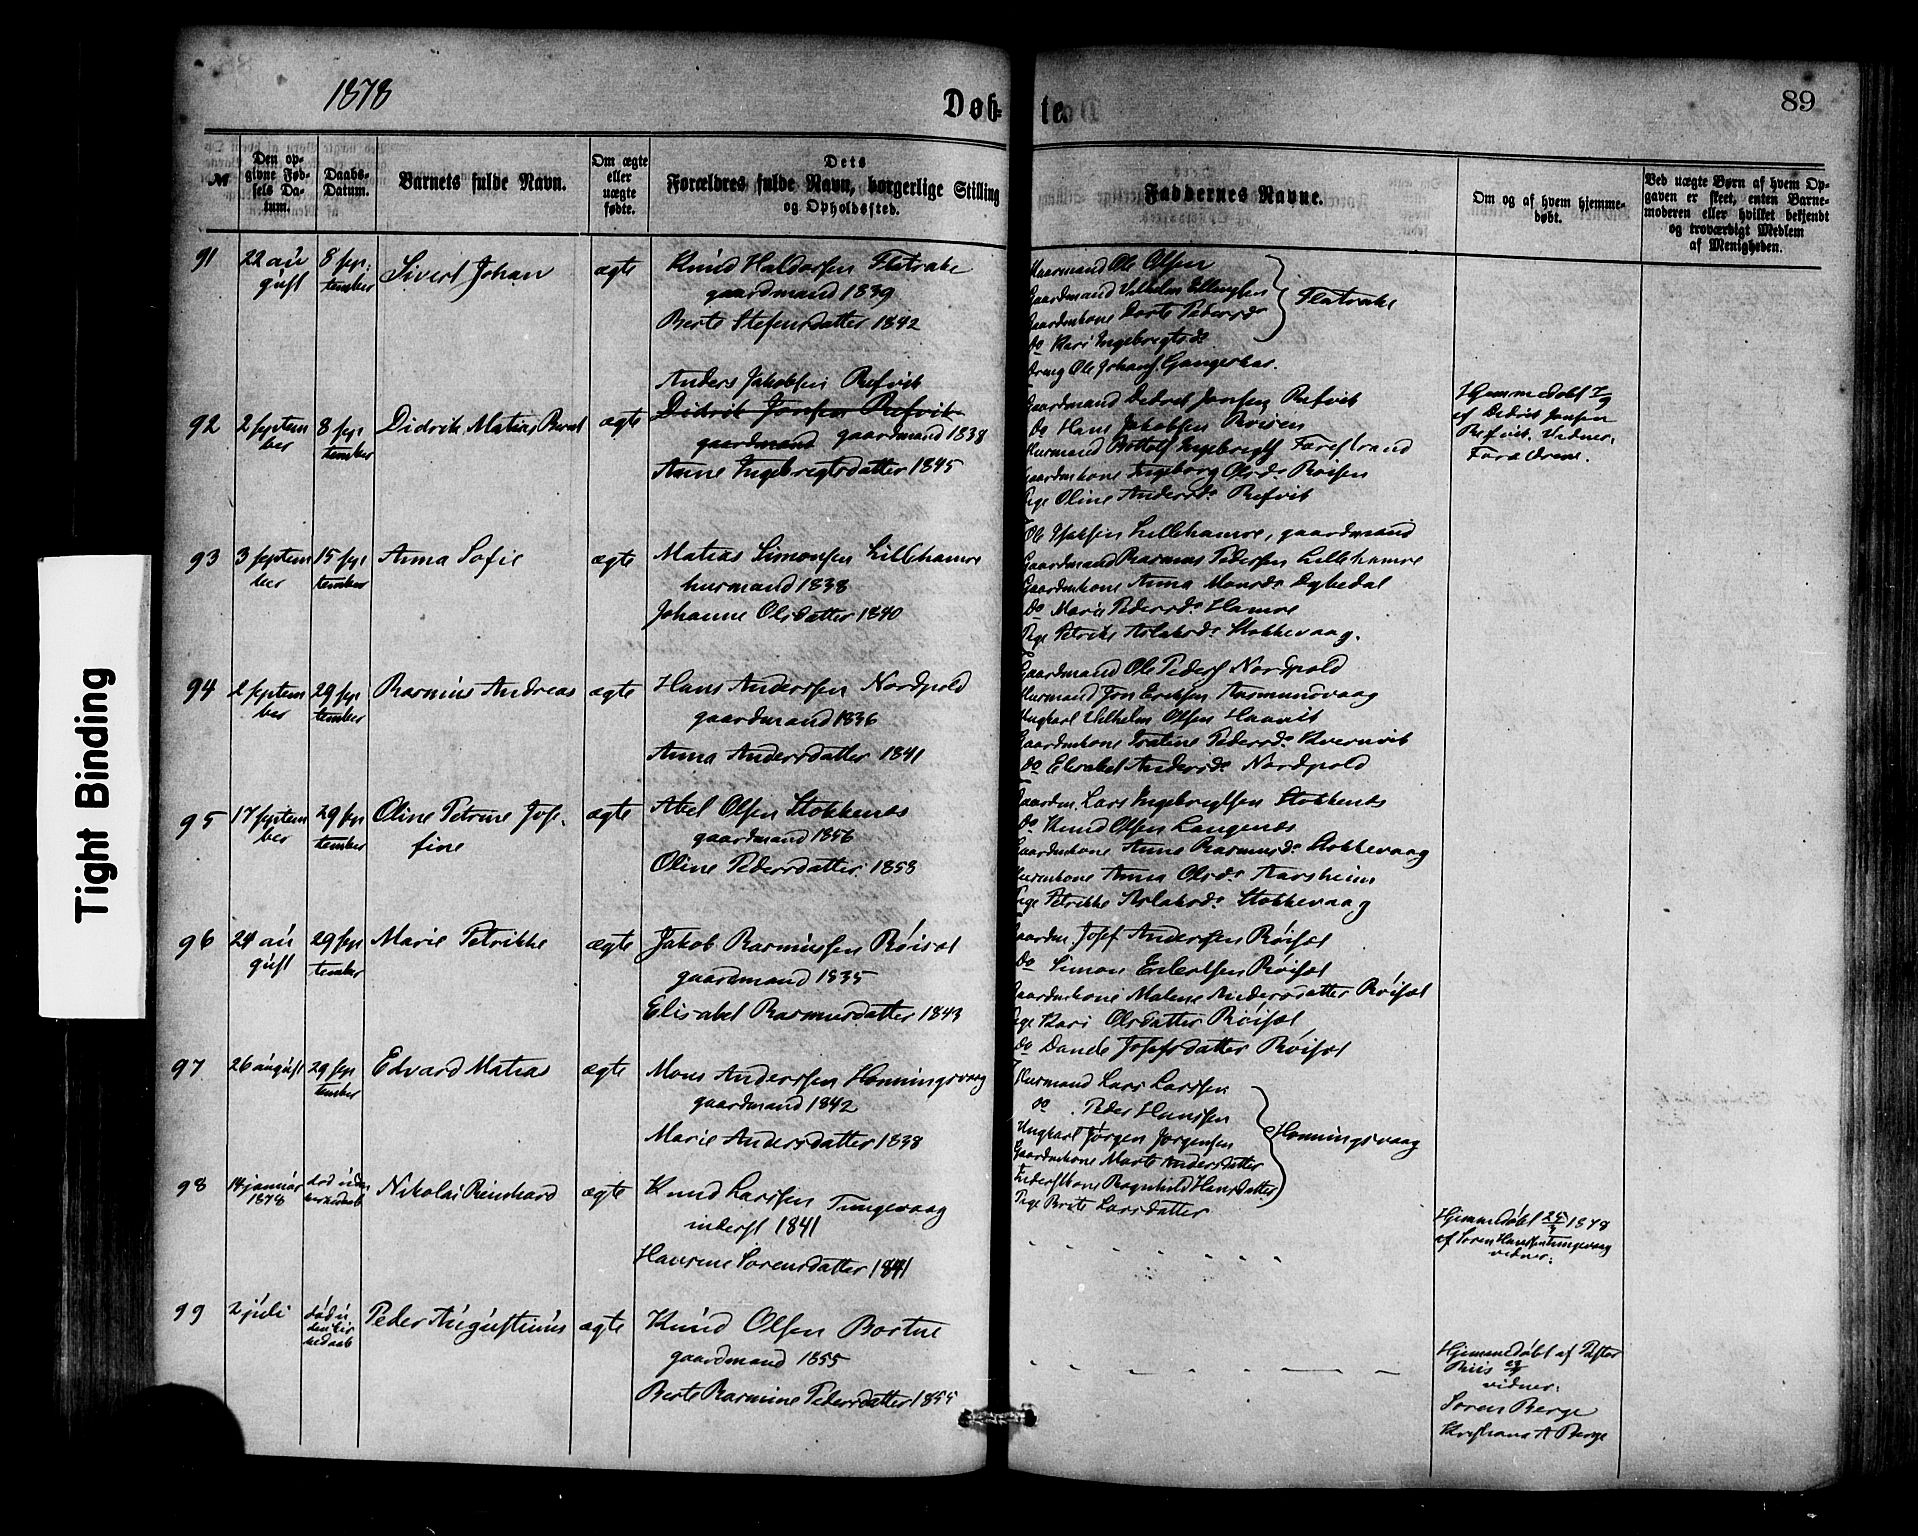 1878
Døb-
te.
89
№
Den op-
givne Fød-
sels Da-
tum.
Daabs-
Datum.
Barnets fulde Navn.
Om ægte
eller
uægte
fødte.
Dets
Forældres fulde Navn, borgerlige Stilling
og Opholdssted.
Faddernes Navne.
Om og af hvem hjemme-
døbt.
Ved uægte Børn af hvem Op-
gaven er skeet, enten Barne-
moderen eller hvilket bekjendt
og troværdigt Medlem
af Menigheden.
91
22 au
gust
8 sep
tember
Sivert Johan
ægte
Knud Haldorsen Flatrake
gaardmand 1839
Berte Stefensdatter 1842
Gaardmand Ole Olsen
Gaardmand Vilhelm Ellingsen
Gaardmkone Dorte Pedersd.
do Kari Ingebrigtsd.
Flatrake
Dreng Ole Johans.
92
2 septem
ber
8 sep
tember
Didrik Matias Bernt
ægte
Anders Jakobsen Refvik
Didrik Jonsen Refvik
gaardmand gaardmand 1838
Anne Ingebrigtsdatter 1845
Gaardmand Didrik Jonsen Refvik
do Hans Jakobsen Røisen
Husmand Bottolf Ingebrigts Farestrand
Gaardmkone Ingeborg Olsd. Røisen
Pige Oline Andersd. Refvik
Hjemmedøbt 7/9
af Didrik Jonsen
Refvik. Vidner:
Forældrene.
93
3 septem
ber
15 sep
tember
Anna Sofie
ægte
Matias Simonsen Lillehamre
husmand 1838
Johanne Olsdatter 1840
Ole Isaksen Lillehamre, gaardmand
Gaardmand Rasmus Pedersen Lillehamre
Gaardmkone Anna Monsd. Dybedal
do Marie Pedersd. Hamre
Pige Petrike Aslaksd. Stokkevaag.
94
2 septem
ber
29 sep
tember
Rasmus Andreas
ægte
Hans Anderssen Nordpold
gaardmand 1836
Anna Andersdatter 1841
Gaardmand Ole Peders Nordpold
Husmand Jon Eriksen Aasmundvaag
Ungkarl Vilhelm Olsen Haavik
Gaardmkone Pedersd. Kvernvik
do Elisabet Andersd. Nordpold
95
17 septem
ber
29 sep
tember
Oline Petrine Jose-
fine
ægte
Abel Olsen Stokkenes
gaardmand 1856
Oline Pedersdatter 1858
Gaardm. Lars Ingebrigtsen Stokkenes
do Knud Olsen Langenes
Gaardmkone Anne Rasmusd. Stokkevaag
Husmkone Anna Olsd. Aarsheim
Pige Petrikke Aslaksd. Stokkevaag
96
24 au
gust
29 sep
tember
Marie Petrikke
ægte
Jakob Rasmussen Røiset
gaardmand 1835
Elisabet Rasmusdatter 1843
Gaardm. Josef Andersen Røiset
do Simon Røiset
Gaardmkone Malene Andersdatter Røiset
Pige Kari Olsdatter Røiset
do Dande Josefsdatter Røiset
97
26 august
29 sep
tember
Edvard Matias
ægte
Mons Anderssen Honningsvaag
gaardmand 1842
Marie Andersdatter 1838
Husmand Lars Larssen
do Peder Hanssen
Ungkarl Jørgen Jørgensen
Gaardmkone Marte Andersdatter
Inderstkone Ragnhild Hansdatter
Pige Berte Larsdatter
Honningsvaag
98
14 januar
1878
død uden
kirkedaab
Nikolai Reinhard
ægte
Knud Larssen Tungevaag
inderst 1841
Hansine Sørensdatter 1841
Hjemmedøbt 24/3 1878
af Søren Hanssen Tungevaag
vidner:
99
2 juli
død u
den kir
kedaab
Peder Augustinus
ægte
Knud Olsen Bortne
gaardmand 1855
Berte Rasmine Pedersdatter 1855
Hjemmedøbt af Pastor
Riis
vidner:
Søren Berge
A Berge
Tight Binding